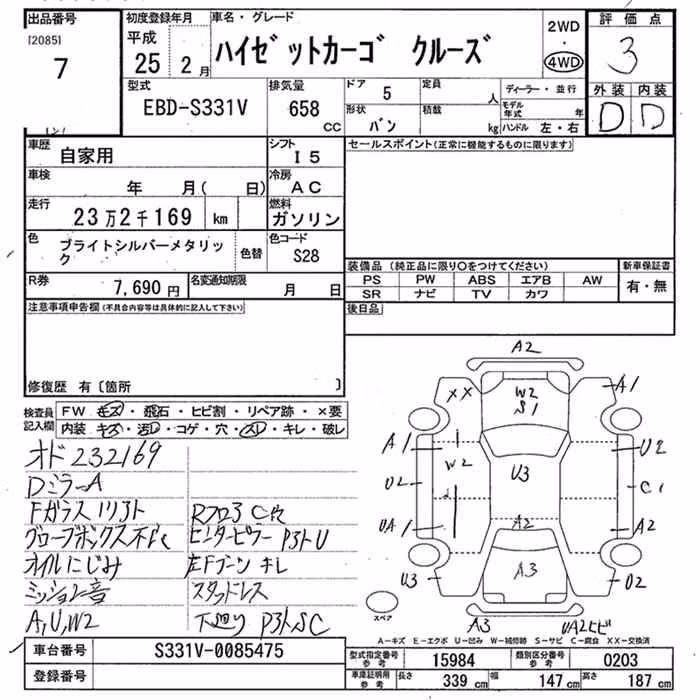 出品番号
[2085]
7
初度登録年月
平成
25 2 月
車名・グレード
ハイゼットカーゴ クルーズ
2WD
・
4WD
評価点
3
外装 内装
D D
型式
EBD-S331V
排気量
658
CC
ドア
5
定員
人
形状
バン
積載
kg
ディーラー・並行
モデル年式 年
ハンドル 左・右
車歴
自家用
シフト
I5
車検
年 月( 日)
冷房
AC
走行
23万2千169 km
燃料
ガソリン
色
ブライトシルバーメタリック
色替
色コード
S28
R券
7,690 円
名変通知期限
月 日
セールスポイント(正常に機能するものに限ります)
装備品(純正品に限り○をつけてください)
PS PW ABS エアB AW
SR ナビ TV カワ
新車保証書
有・無
後日品
注意事項申告欄(不具合内容等は具体的に記入して下さい)
修復歴 有〔箇所 〕
検査員
記入欄
FW キズ・飛石・ヒビ割・リペア跡・×要
内装 キズ・汚レ・コゲ・穴・スレ・キレ・破レ
オド232169
Dミラー A
Fガラス リフト
グローブボックス不良
オイルにじみ
ミッション音
A,U,W2
Rフロア C穴
センターピラー P3トU
左Fブーツ キレ
スタッドレス
下廻り P3ト,SC
A2
XX
W2
S1
A1
A1
W2
U3
U2
U2
C1
UA1
A2
A2
U3
A3
U2
A3
UA2ヒビ
スペア
A-キズ E-エクボ U-凹み W-補修跡 S-サビ C-腐食 XX-交換済
車台番号
S331V-0085475
登録番号
型式指定番号
参考
15984
類別区分番号
参考
0203
車庫証明用
参考
長さ
339 cm
幅
147 cm
高さ
187 cm